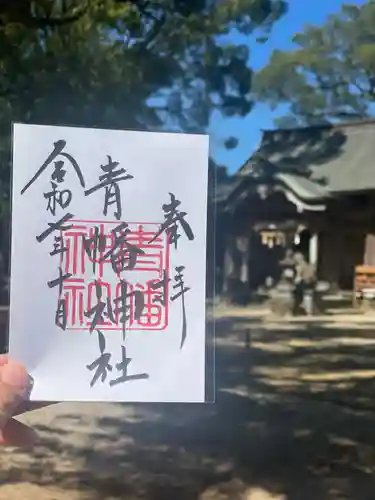 奉拝
青幡神社
令和七年十月
青幡神社